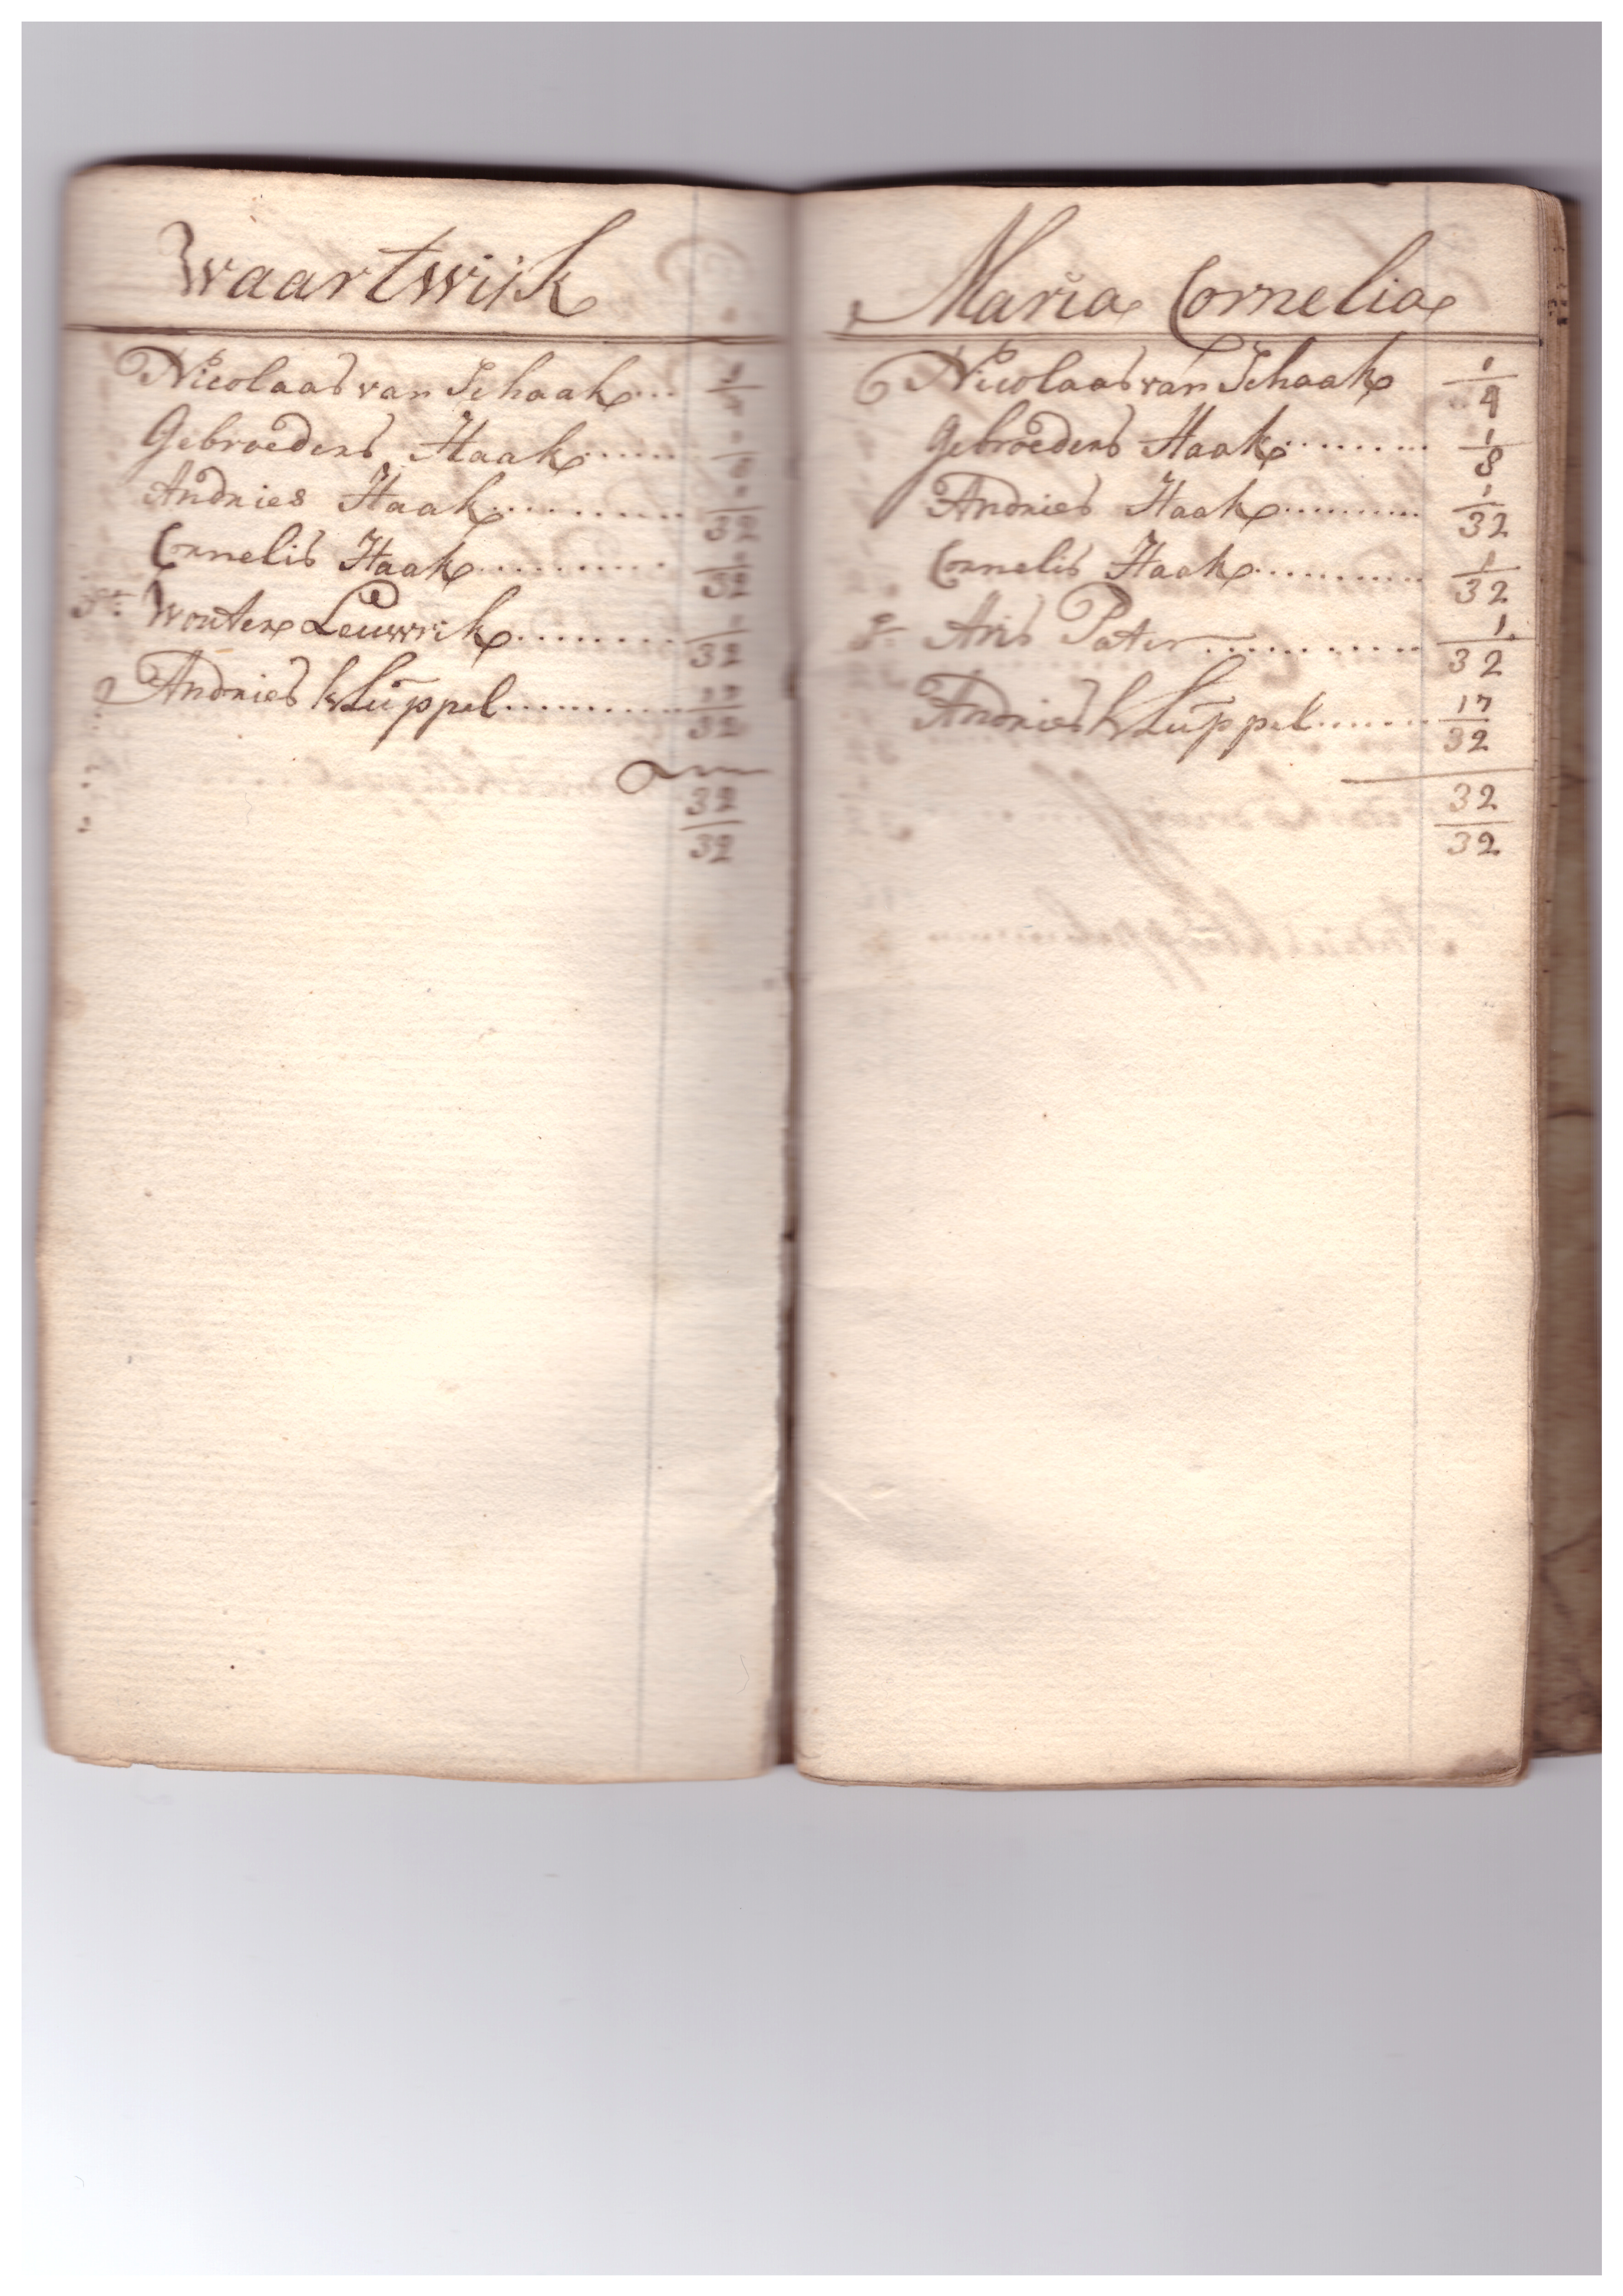 Waartwijk
Nicolaas van Schaak... 1/4
Gebroeders Haak....... 1/8
Andries Haak.......... 1/32
Cornelis Haak.......... 1/32
Wouter Leuwrik........ 1/32
Andries Klüppel.......... 17/32
32/32
Maria Cornelia
Nicolaas van Schaak 1/4
Gebroeders Haak......... 1/8
Andries Haak.......... 1/32
Cornelis Haak........... 1/32
Aris Pater............ 1/32
Andries Klüppel....... 17/32
32/32